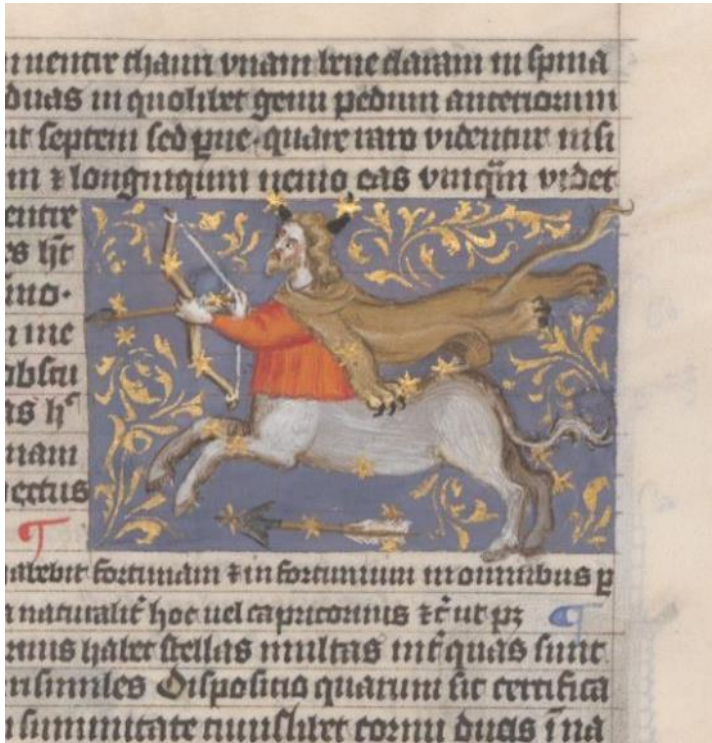 uenitur etiam vnam bene claram in spina
duas in quolibet genu pedum anteriorum
nt septem sed prue quare raro videntur nisi
m ⁊ longinquum nemo eas vniqm videt
entre
es ht
ino.
n me
obscu
as h
nam
ectus
¶
habebit fortunam ⁊ infortunium in omnibus p
a naturalit hoc uel capricornus ⁊c ut pz ¶
rnus habet stellas multas int quas sunt
nsimiles Dispositio quarum sic certifica
summitate cornu duas